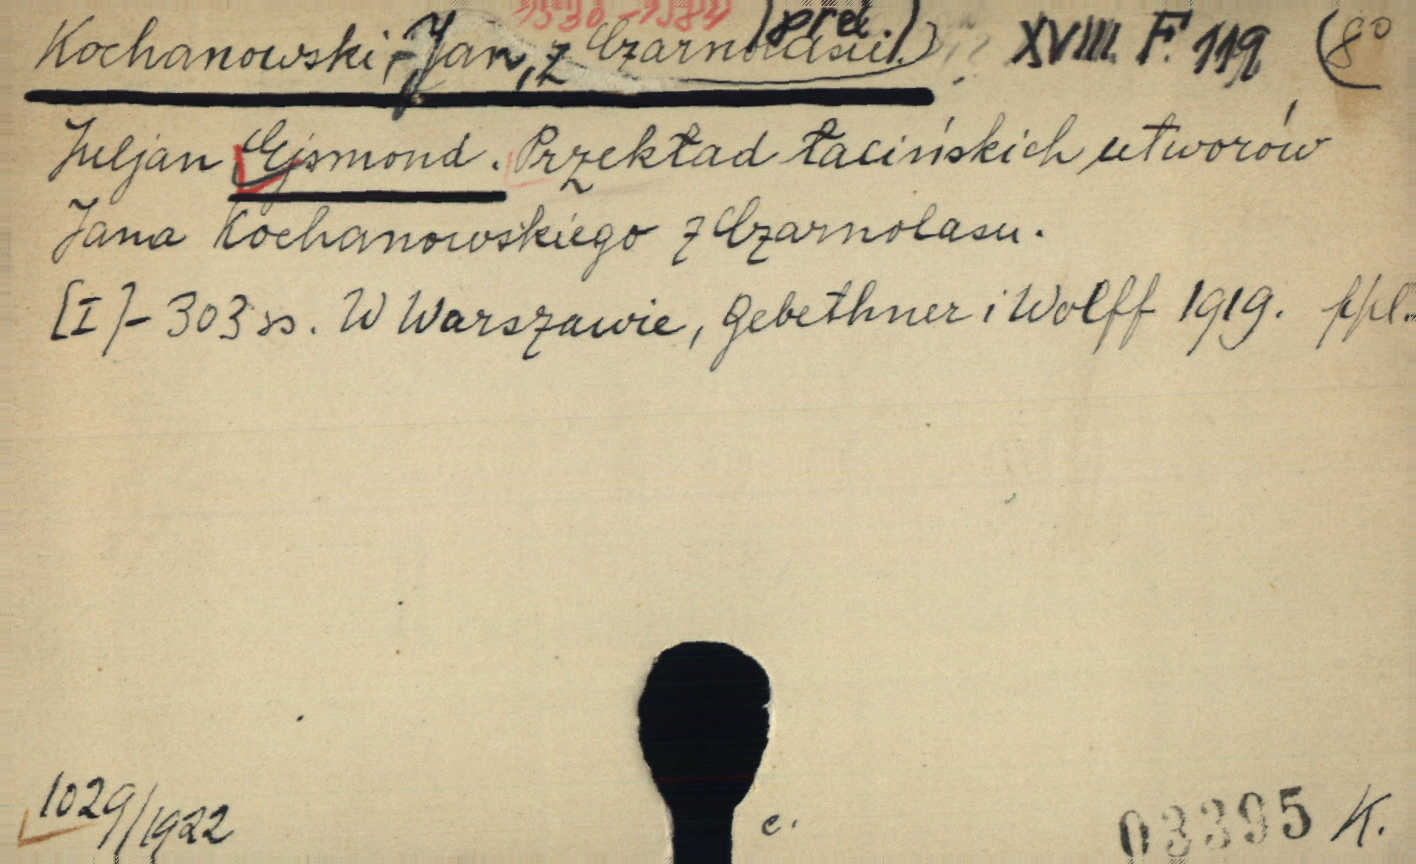 1530-1584
Kochanowski, Jan, z Czarnolasu. (pred.) XVIII. F. 119 (8°
Juljan Ejsmond. Przekład łacińskich utworów
Jana Kochanowskiego z Czarnolasu.
[I]-303 ss. W Warszawie, Gebethner i Wolff 1919. ppl.
1029/1922
c.
03395 K.